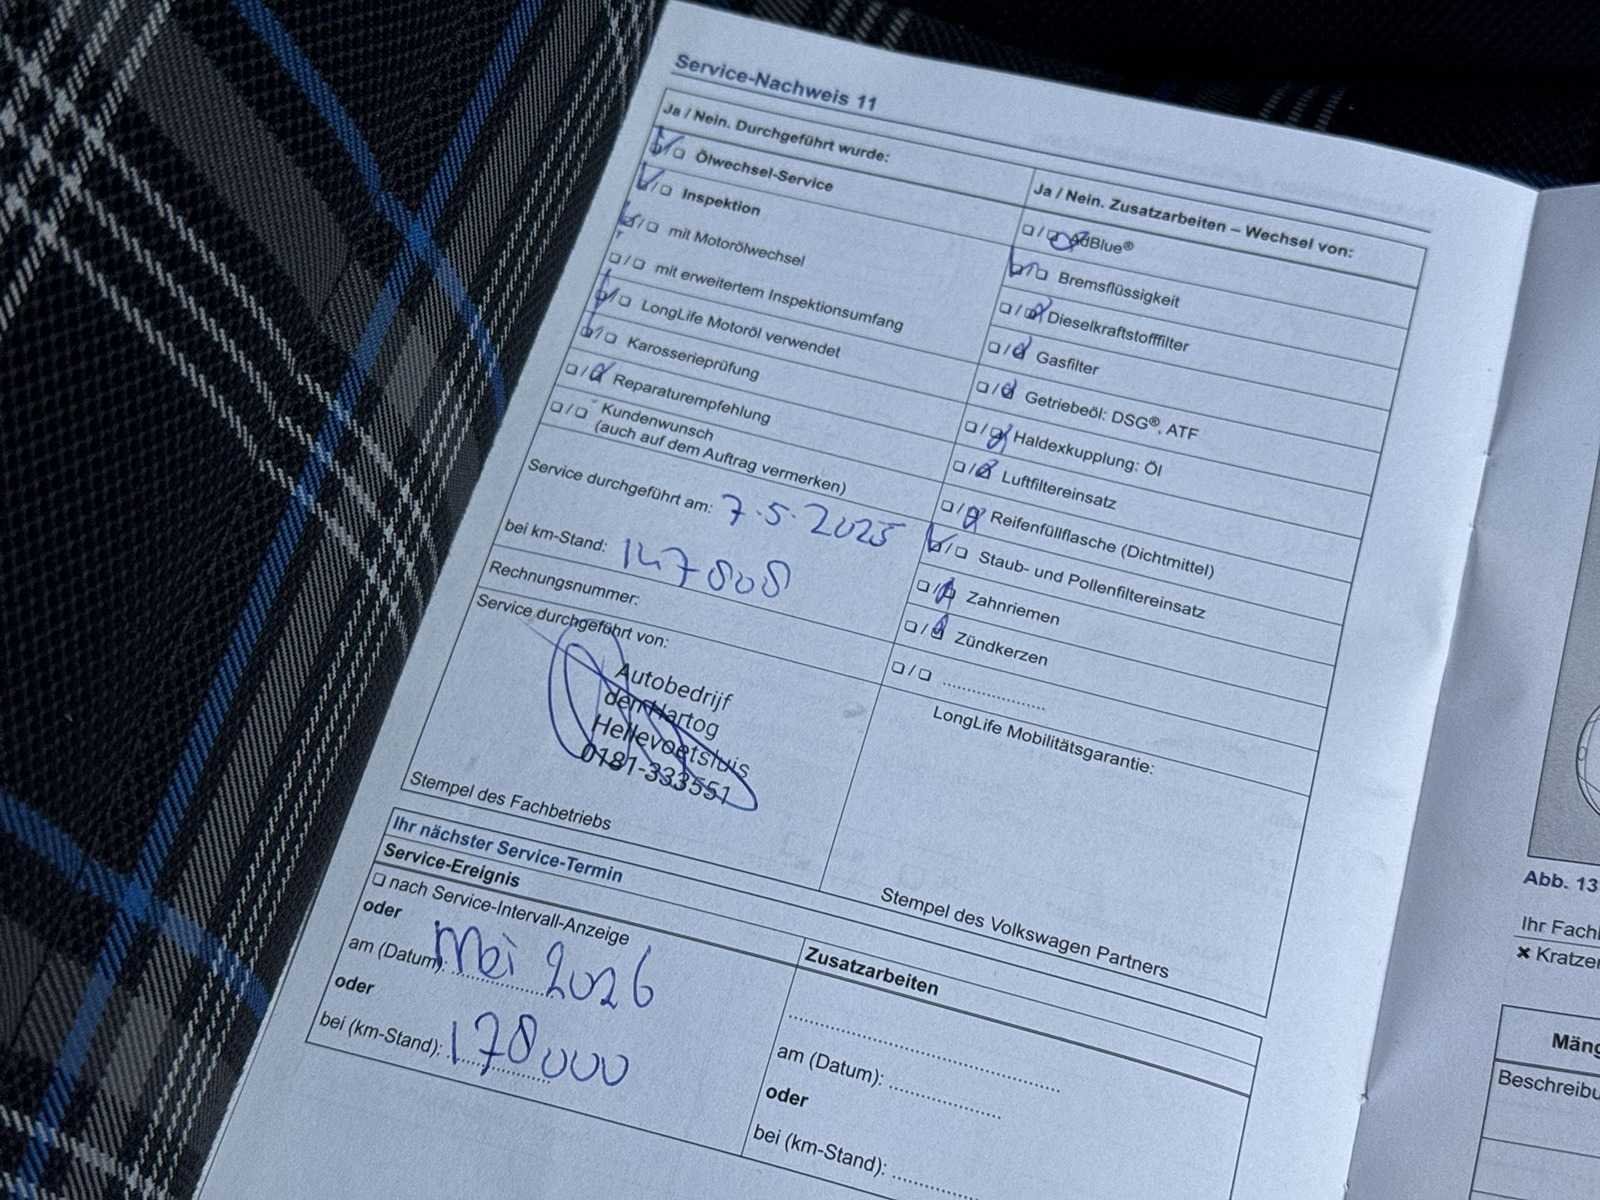 Service-Nachweis 11
Ja / Nein. Durchgeführt wurde:
Ölwechsel-Service
Inspektion
mit Motorölwechsel
mit erweitertem Inspektionsumfang
LongLife Motoröl verwendet
Karosserieprüfung
Reparaturempfehlung
Kundenwunsch
(auch auf dem Auftrag vermerken)
Service durchgeführt am: 7.5.2025
bei km-Stand: 147808
Rechnungsnummer:
Service durchgeführt von:
Autobedrijf
den Hartog
Hellevoetsluis
0181-333551
Stempel des Fachbetriebs
Ja / Nein. Zusatzarbeiten – Wechsel von:
AdBlue®
Bremsflüssigkeit
Dieselkraftstofffilter
Gasfilter
Getriebeöl: DSG®, ATF
Haldexkupplung: Öl
Luftfiltereinsatz
Reifenfüllflasche (Dichtmittel)
Staub- und Pollenfiltereinsatz
Zahnriemen
Zündkerzen
LongLife Mobilitätsgarantie:
Stempel des Volkswagen Partners
Ihr nächster Service-Termin
Service-Ereignis
nach Service-Intervall-Anzeige
oder
am (Datum): Mei 2026
oder
bei (km-Stand): 178000
Zusatzarbeiten
am (Datum):
oder
bei (km-Stand):
Abb. 13
Ihr Fach
Kratze
Mäng
Beschreibu